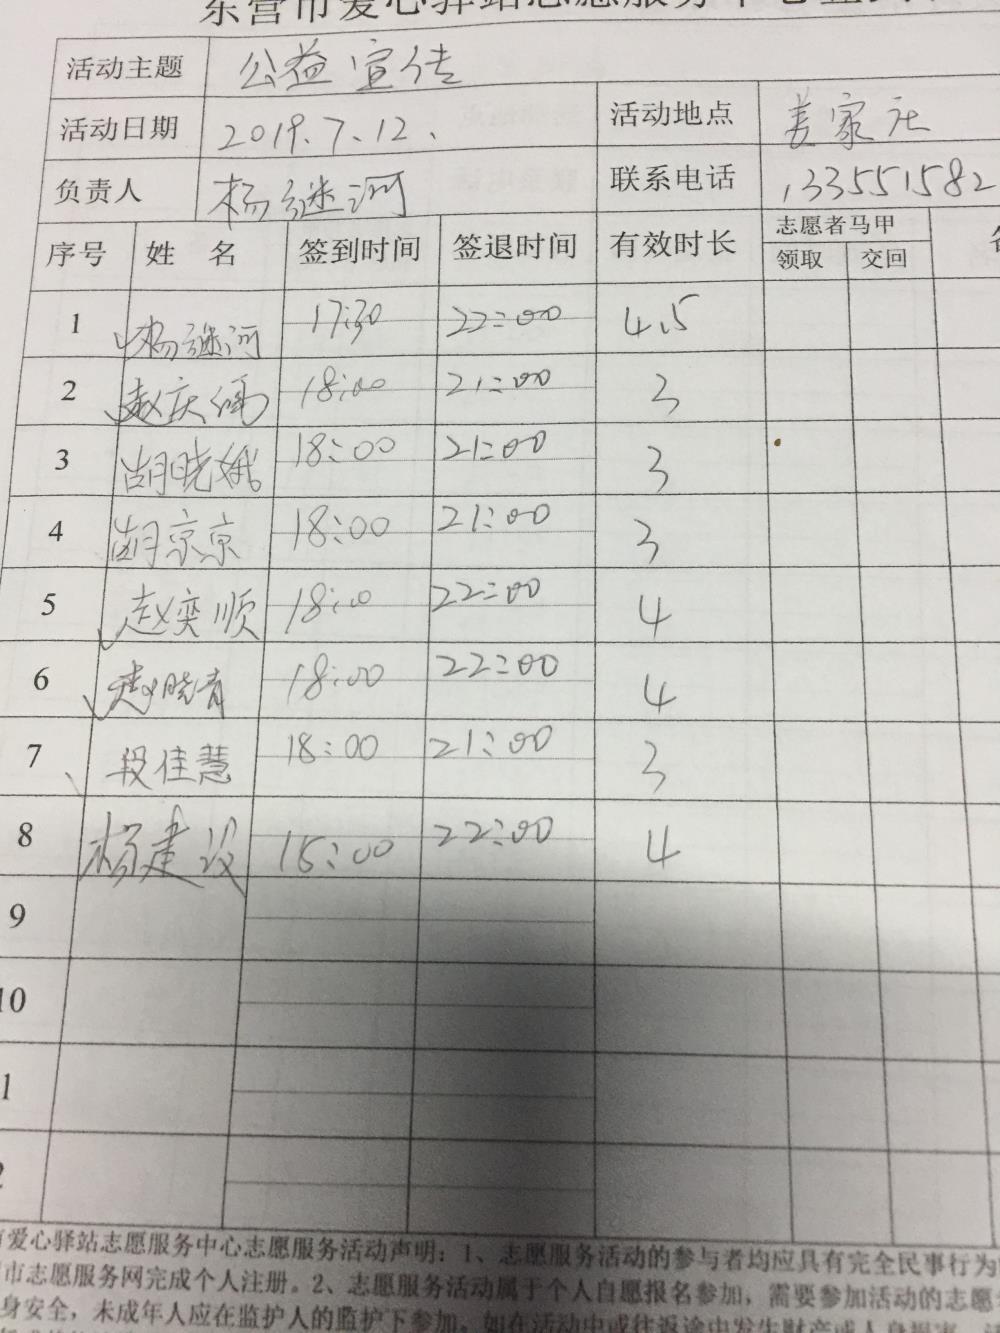 东营市爱心驿站志愿服务中心
活动主题 公益宣传
活动日期 2019.7.12. 活动地点 姜家庄
负责人 杨继河 联系电话 133551582
序号 姓 名 签到时间 签退时间 有效时长 志愿者马甲
领取 交回
1 杨继河 17:30 22:00 4.5
2 赵庆 18:00 21:00 3
3 胡晓娥 18:00 21:00 3
4 胡京京 18:00 21:00 3
5 赵奕顺 18:00 22:00 4
6 赵晓青 18:00 22:00 4
7 段佳慧 18:00 21:00 3
8 杨建设 18:00 22:00 4
9
10
1
2
爱心驿站志愿服务中心志愿服务活动声明：1、志愿服务活动的参与者均应具有完全民事行为
市志愿服务网完成个人注册。2、志愿服务活动属于个人自愿报名参加，需要参加活动的志愿
身安全，未成年人应在监护人的监护下参加。如在活动中或往返途中发生财产或人身损害，